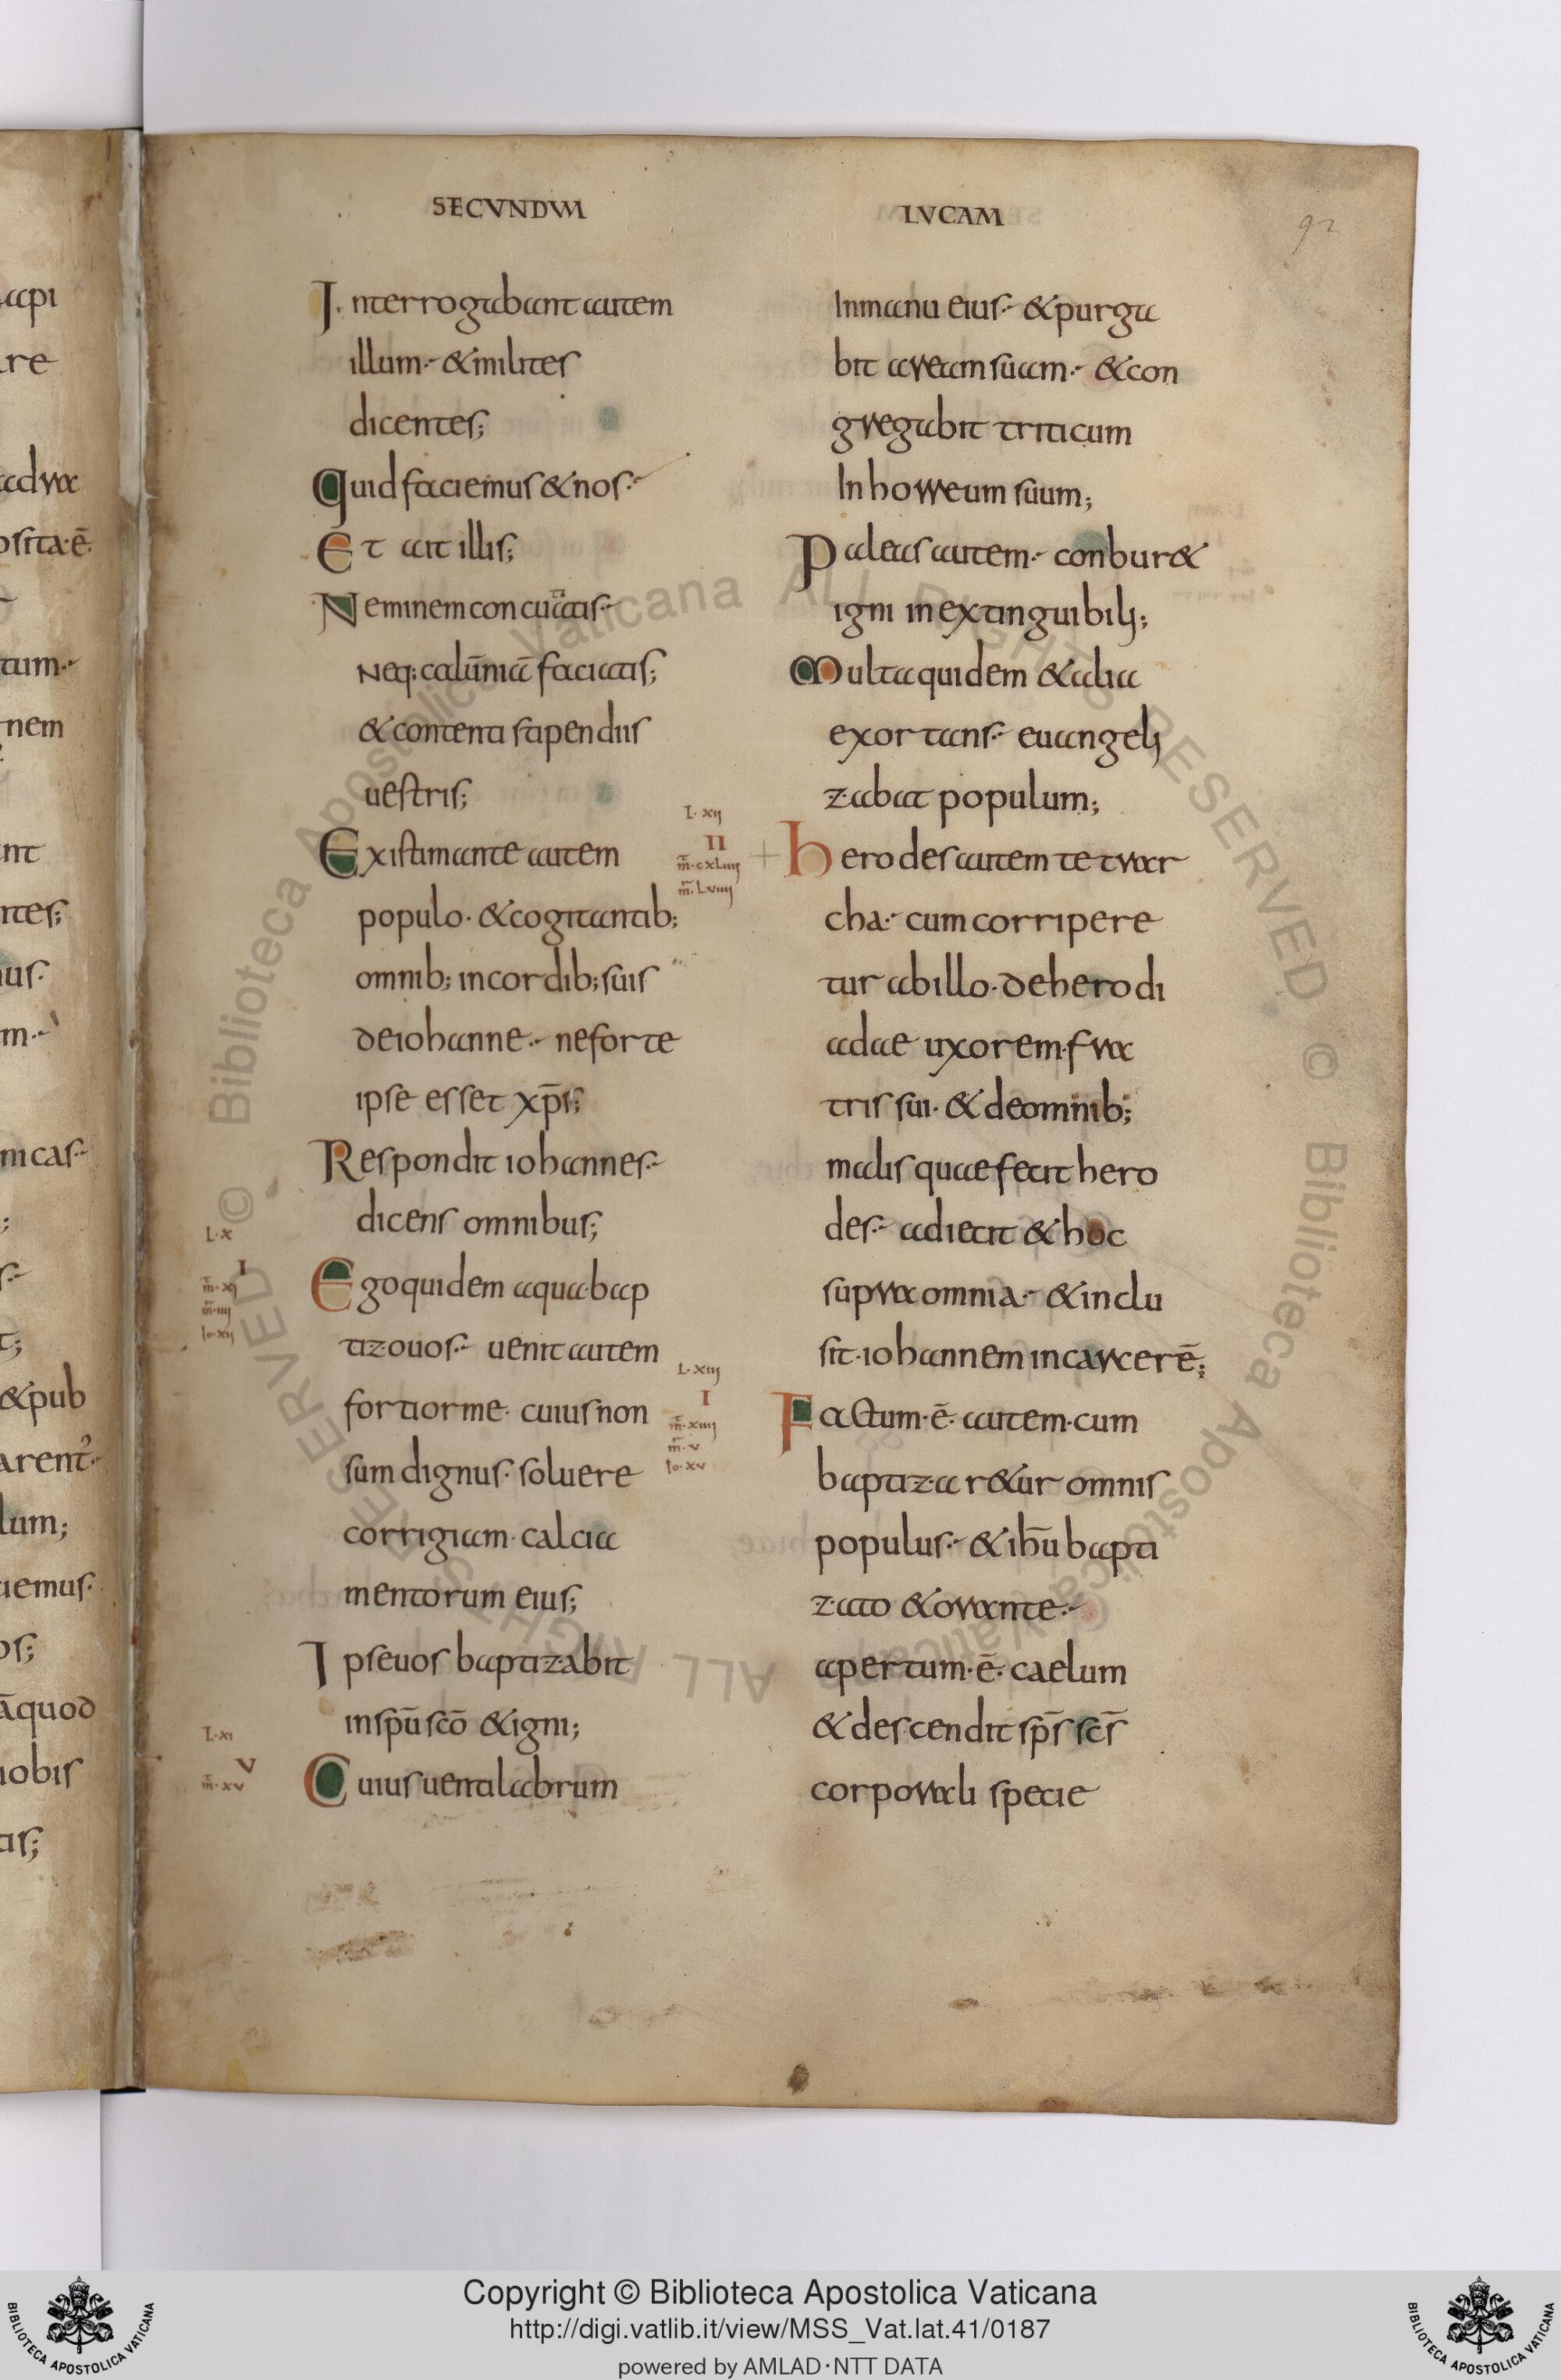 SECUNDUM LUCAM
92
Interrogabant autem
illum·- & milites
dicentes;
Quid faciemus & nos·-
Et ait illis;
Neminem concutiatis·-
Neq; calūniā faciatis;
& contenti stipendiis
uestris;
Existimante autem
populo· & cogitantib;
omnib; in cordib; suis
de iohanne·- ne forte
ipse esset xp̄s;
Respondit iohannes·-
dicens omnibus;
L·x
I
m̄·xi
m̄·iiii
Io·xii
Ego quidem aqua bap
tizo uos·- uenit autem
fortior me· cuius non
sum dignus· soluere
corrigiam· calcia
mentorum eius;
Ipse uos baptizabit
in sp̄u scō & igni;
L·xi
V
m̄·xv
Cuius uentilabrum
In manu eius·- & purga
bit aream suam·- & con
gregabit triticum
In horreum suum;
Paleas autem·- conbur&
igni inextinguibili;
Multa quidem & alia
exortans·- euangeli
zabat populum;
L·xii
II
m̄·cxliiii
m̄·Lviiii
herodes autem tetrar
cha·- cum corripere
tur ab illo· de herodi
adae uxorem· fra
tris sui· & de omnib;
malis quae fecit hero
des·- adiecit & hoc
supra omnia·- & inclu
sit· iohannem in carcerē;
L·xiii
I
m̄·xiiii
m̄·v
Io·xv
Factum·ē· autem· cum
baptizar&ur omnis
populus·- & ih̄u bapti
zato & orante·-
apertum·ē· caelum
& descendit sp̄s sc̄s
corporali specie
Copyright © Biblioteca Apostolica Vaticana
http://digi.vatlib.it/view/MSS_Vat.lat.41/0187
powered by AMLAD·NTT DATA
BIBLIOTECA APOSTOLICA VATICANA
BIBLIOTECA APOSTOLICA VATICANA